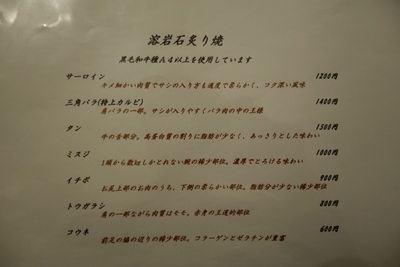 溶岩石炙り焼
黒毛和牛種Ａ４以上を使用しています
サーロイン 1200円
キメ細かい肉質でサシの入り方も適度で柔らかく、コク深い風味
三角バラ(特上カルビ) 1400円
肩バラの一部。サシが入りやすくバラ肉の中の王様
タン 1300円
牛の舌部分。高蛋白質の割りに脂肪が少なく、あっさりとした味わい
ミスジ 1000円
1頭から数㎏しかとれない腕の稀少部位。濃厚でとろける味わい
イチボ 900円
お尻上部のお肉のうち、下側の柔らかい部位。脂肪分が少ない稀少部位
トウガラシ 800円
肩の一部ながら肉質はモモ。赤身の王道的部位
コウネ 600円
前足の脇の辺りの稀少部位。コラーゲンとゼラチンが豊富